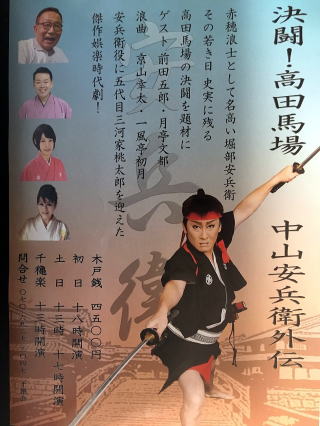 決闘!高田馬場
中山安兵衛外伝
赤穂浪士として名高い堀部安兵衛
その若き日 史実に残る
高田馬場の決闘を題材に
ゲスト 前田五郎・月亭文都
浪曲 京山幸太・一風亭初月
安兵衛役に五代目三河家桃太郎を迎えた
傑作娯楽時代劇!
安兵衛
木戸銭 四五〇〇円
初日 十八時開演
土日 十三時・十七時開演
千穐楽 十三時開演
問合せ